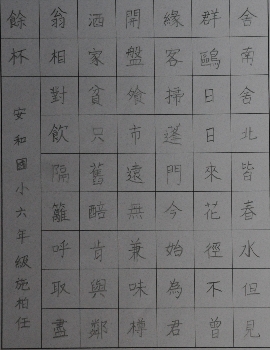 舍南舍北皆春水但見
群鷗日日來花徑不曾
緣客掃蓬門今始為君
開盤飧市遠無兼味樽
酒家貧只舊醅肯與鄰
翁相對飲隔籬呼取盡
餘杯
安和國小六年級施柏任